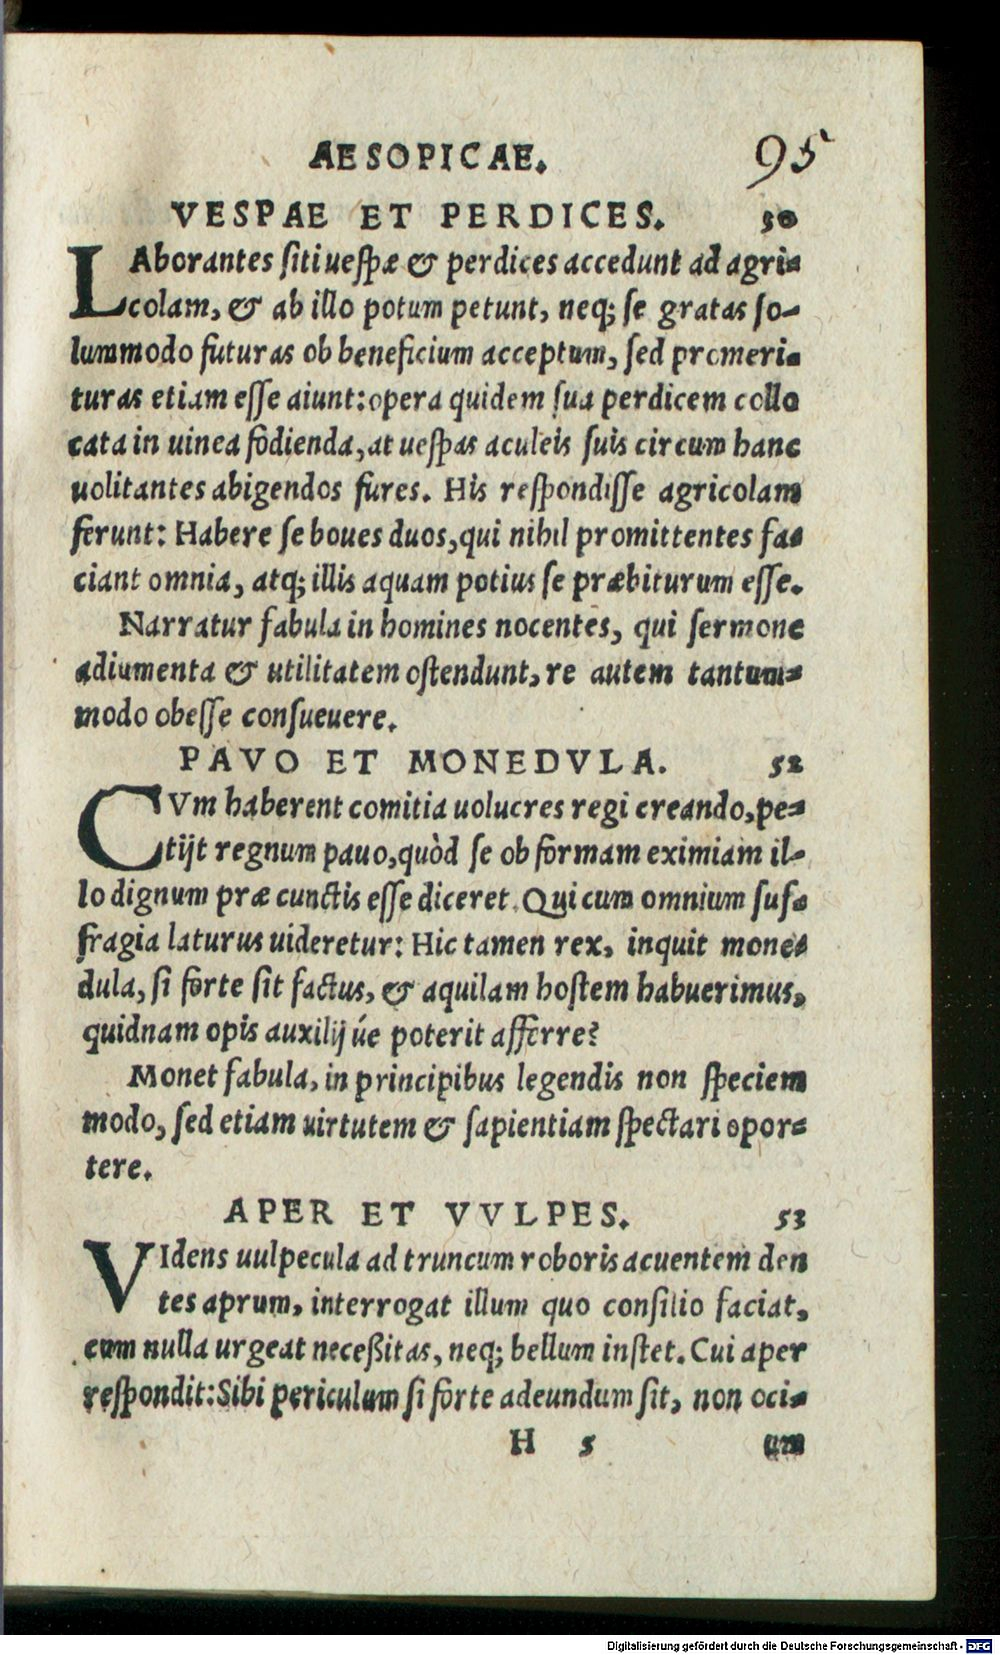 AESOPICAE. 95
VESPAE ET PERDICES. 50
LAborantes siti uespæ & perdices accedunt ad agri-
colam, & ab illo potum petunt, neq; se gratas so-
lummodo futuras ob beneficium acceptum, sed promeri-
turas etiam esse aiunt: opera quidem sua perdicem collo
cata in uinea fodienda, at uespas aculeis suis circum hanc
uolitantes abigendos fures. His respondisse agricolam
ferunt: Habere se boues duos, qui nihil promittentes fa-
ciant omnia, atq; illis aquam potius se præbiturum esse.
Narratur fabula in homines nocentes, qui sermone
adiumenta & utilitatem ostendunt, re autem tantum-
modo obesse consueuere.
PAVO ET MONEDVLA. 52
CVm haberent comitia uolucres regi creando, pe-
tijt regnum pauo, quòd se ob formam eximiam il-
lo dignum præ cunctis esse diceret. Qui cum omnium suf-
fragia laturus uideretur: Hic tamen rex, inquit mone-
dula, si forte sit factus, & aquilam hostem habuerimus,
quidnam opis auxilij úe poterit afferre?
Monet fabula, in principibus legendis non speciem
modo, sed etiam uirtutem & sapientiam spectari opor-
tere.
APER ET VVLPES. 53
VIdens uulpecula ad truncum roboris acuentem den
tes aprum, interrogat illum quo consilio faciat,
cum nulla urgeat neceßitas, neq; bellum instet. Cui aper
respondit: Sibi periculum si forte adeundum sit, non oci-
H 5 um
Digitalisierung gefördert durch die Deutsche Forschungsgemeinschaft - DFG